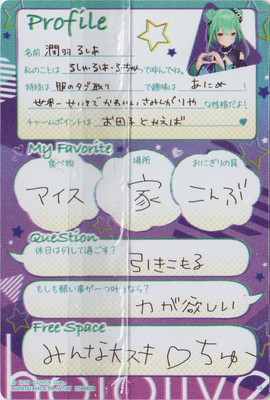 Profile
名前 潤羽るしあ
私のことは るしあ・るーちゃ って呼んでね。
特技は 服のタグ取り で趣味は あにめ！
世界一せいそでかわいいさみしがりや な性格だよ！
チャームポイントは お団子とかえば ♥
My Favorite
食べ物 場所 おにぎりの具
アイス 家 こんぶ
Question
休日は何して過ごす？
引きこもる
もしも願い事が一つ叶うなら？
力が欲しい
Free Space
みんな大スキ♡ちゅ〜